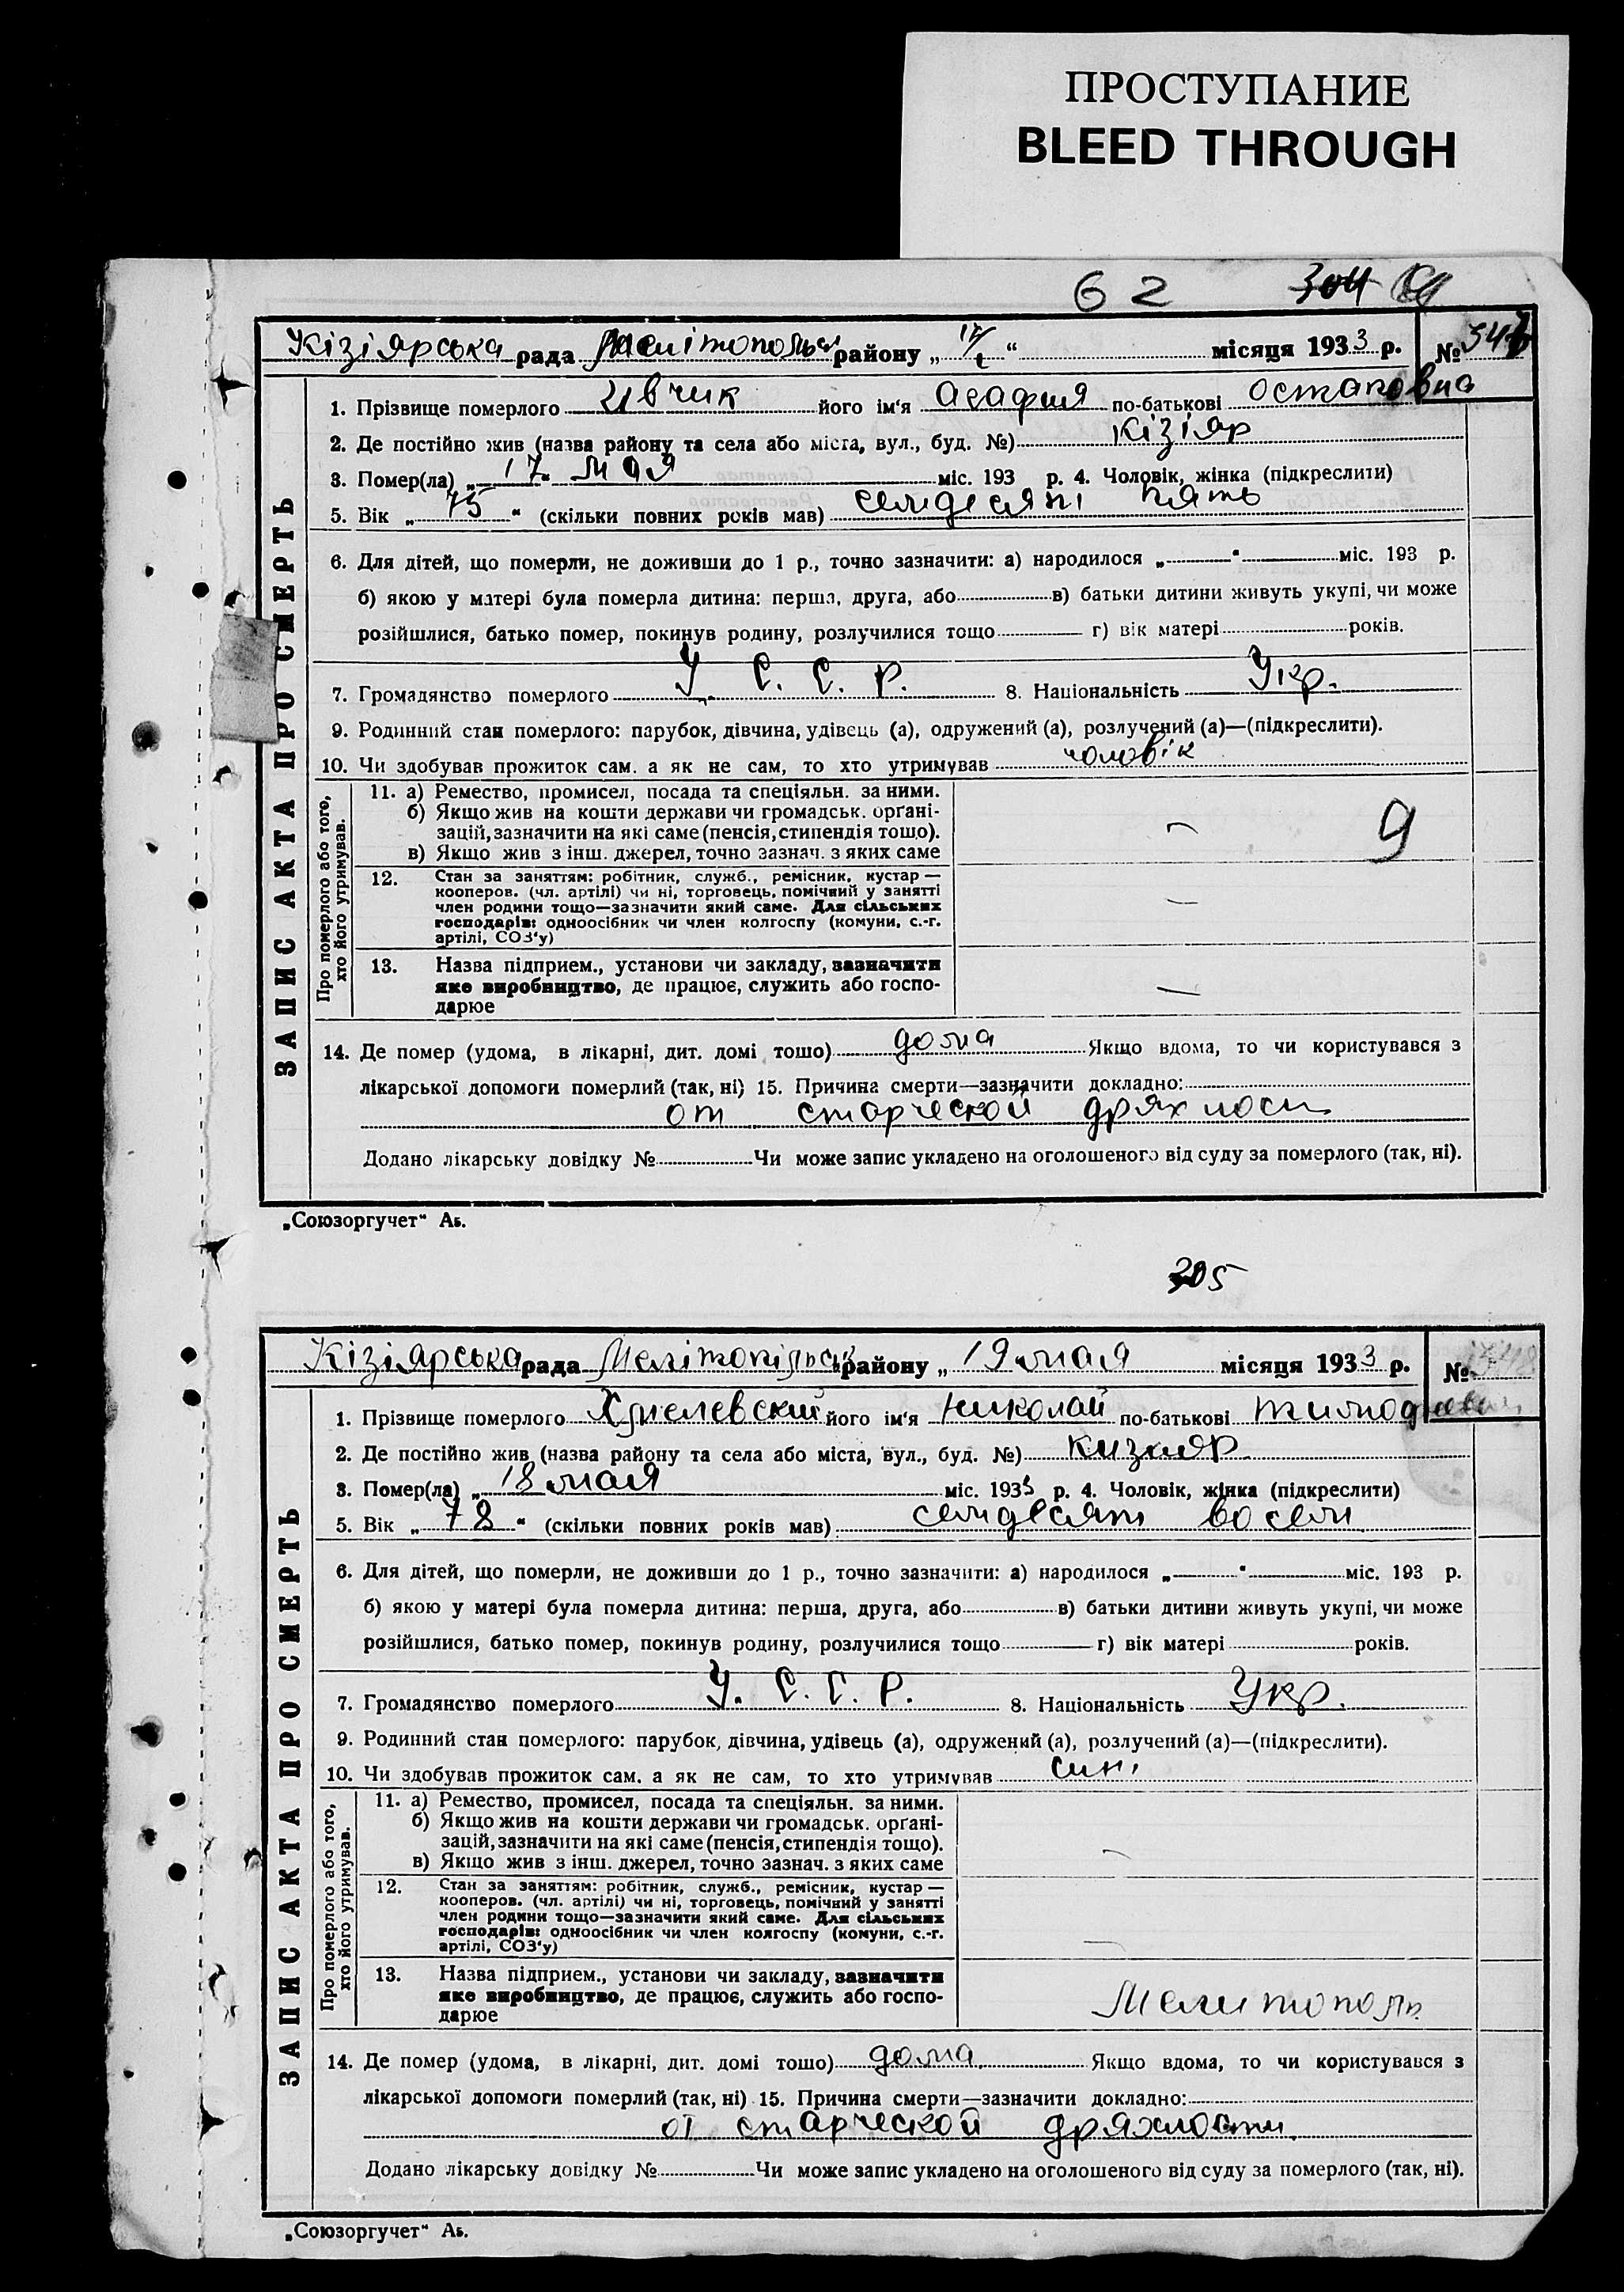 ПРОСТУПАНИЕ
BLEED THROUGH
62 304
Кізіярська рада района „17/" місяця 1933 р. №
1. Прізвище померлого Ивчик його ім'я Агафия по-батькові Остаповна
2. Де постійно жив (назва району та села або міста, вул., буд. №) Кізіяр
3. Помер(ла) „17" мая міс. 193 р. 4. Чоловік, жінка (підкреслити)
5. Вік „75" (скільки повних років мав) семдесят пять
6. Для дітей, що померли, не доживши до 1 р., точно зазначити: а) народилося „ " міс. 193 р.
б) якою у матері була померла дитина: перша, друга, або в) батьки дитини живуть укупі, чи може
розійшлися, батько помер, покинув родину, розлучилися тощо г) вік матері років.
7. Громадянство померлого У. С. С. Р. 8. Національність Укр.
9. Родинний стан померлого: парубок, дівчина, удівець (а), одружений (а), розлучений (а)—(підкреслити).
10. Чи здобував прожиток сам, а як не сам, то хто утримував чоловік
ЗАПИС АКТА ПРО СМЕРТЬ
Про померлого або того, хто його утримував.
11. а) Ремество, промисел, посада та спеціяльн. за ними.
б) Якщо жив на кошти держави чи громадськ. орґані-
зацій, зазначити на які саме (пенсія, стипендія тощо).
в) Якщо жив з інш. джерел, точно зазнач. з яких саме
— 9
12. Стан за заняттям: робітник, служб., ремісник, кустар—
кооперов. (чл. артілі) чи ні, торговець, помічний у занятті
член родини тощо—зазначити який саме. Для сільських
господарів: одноосібник чи член колгоспу (комуни, с.-г.
артілі, СОЗ'у)
—
13. Назва підприєм., установи чи закладу, зазначити
яке виробництво, де працює, служить або госпо-
дарює
—
14. Де помер (удома, в лікарні, дит. домі тощо) дома Якщо вдома, то чи користувався з
лікарської допомоги померлий (так, ні) 15. Причина смерти—зазначити докладно:
от старческой дряхлости
Додано лікарську довідку № Чи може запис укладено на оголошеного від суду за померлого (так, ні).
„Союзоргучет" Аь.
305
Кізіярська рада Мелітопільськ району „19 мая місяця 1933 р. №
1. Прізвище померлого його ім'я Николай по-батькові
2. Де постійно жив (назва району та села або міста, вул., буд. №) Кизияр
3. Помер(ла) „18 мая міс. 1933 р. 4. Чоловік, жінка (підкреслити)
5. Вік „78" (скільки повних років мав) семдесят восем
6. Для дітей, що померли, не доживши до 1 р., точно зазначити: а) народилося „ " міс. 193 р.
б) якою у матері була померла дитина: перша, друга, або в) батьки дитини живуть укупі, чи може
розійшлися, батько помер, покинув родину, розлучилися тощо г) вік матері років.
7. Громадянство померлого У. С. С. Р. 8. Національність Укр.
9. Родинний стан померлого: парубок, дівчина, удівець (а), одружений (а), розлучений (а)—(підкреслити).
10. Чи здобував прожиток сам, а як не сам, то хто утримував син
ЗАПИС АКТА ПРО СМЕРТЬ
Про померлого або того, хто його утримував.
11. а) Ремество, промисел, посада та спеціяльн. за ними.
б) Якщо жив на кошти держави чи громадськ. орґані-
зацій, зазначити на які саме (пенсія, стипендія тощо).
в) Якщо жив з інш. джерел, точно зазнач. з яких саме
—
12. Стан за заняттям: робітник, служб., ремісник, кустар—
кооперов. (чл. артілі) чи ні, торговець, помічний у занятті
член родини тощо—зазначити який саме. Для сільських
господарів: одноосібник чи член колгоспу (комуни, с.-г.
артілі, СОЗ'у)
—
13. Назва підприєм., установи чи закладу, зазначити
яке виробництво, де працює, служить або госпо-
дарює
Мелитополь
14. Де помер (удома, в лікарні, дит. домі тощо) дома Якщо вдома, то чи користувався з
лікарської допомоги померлий (так, ні) 15. Причина смерти—зазначити докладно:
от старческой дряхлости
Додано лікарську довідку № Чи може запис укладено на оголошеного від суду за померлого (так, ні).
„Союзоргучет" Аь.